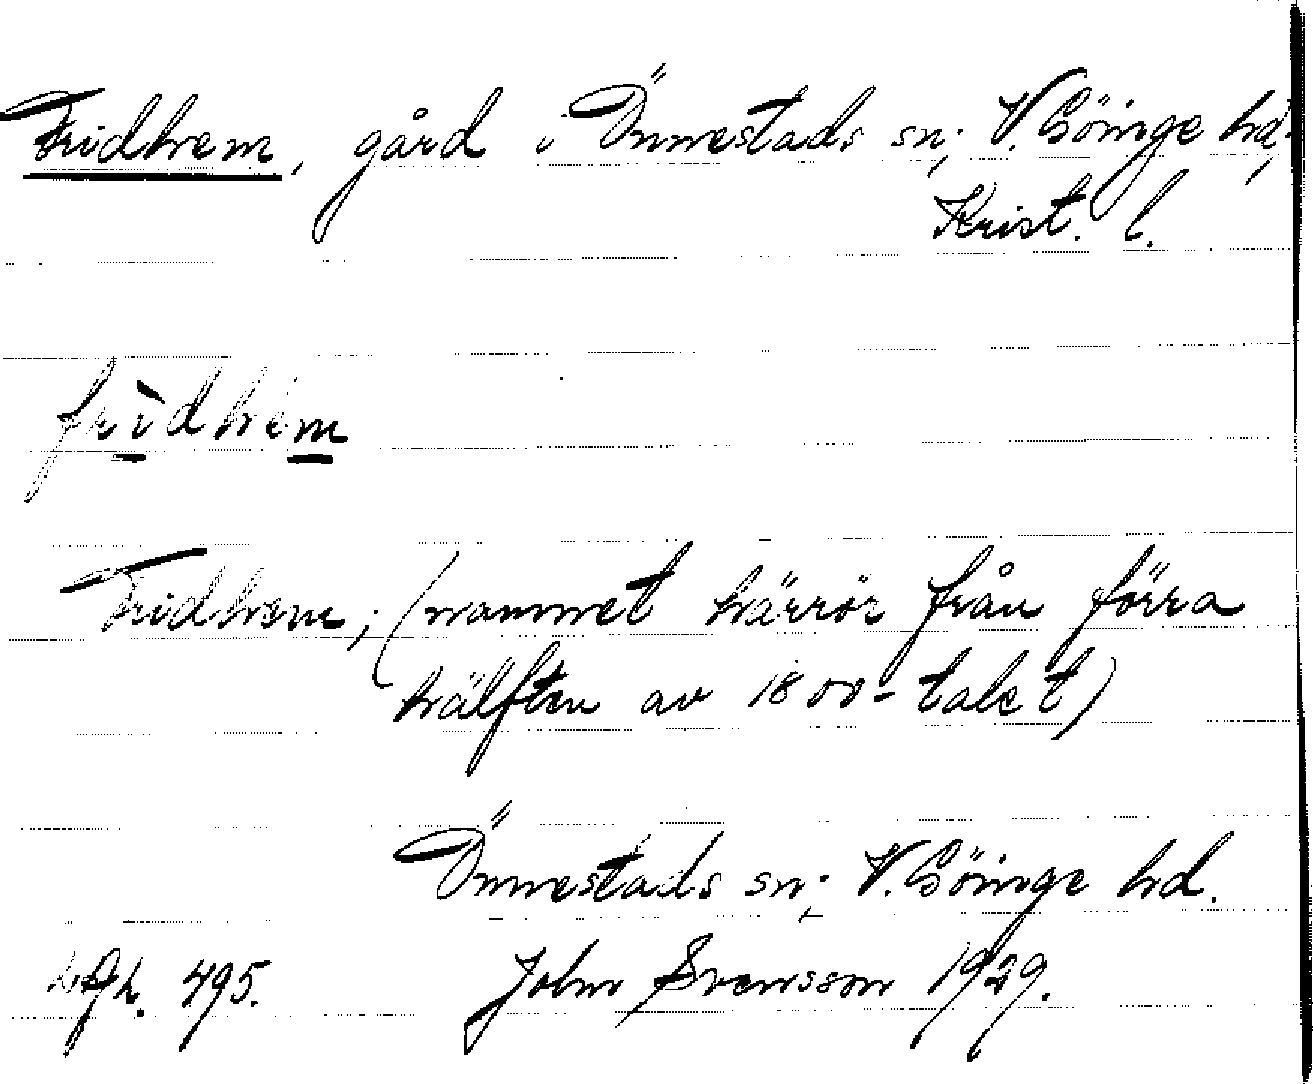 Fridhem, gård i Önnestads sn; V. Göinge hd,
Krist. l.
fri̱dhem̱
Fridhem; (namnet härrör från förra
hälften av 1800-talet)
Önnestads sn; V. Göinge hd.
495. John Svensson 1929.